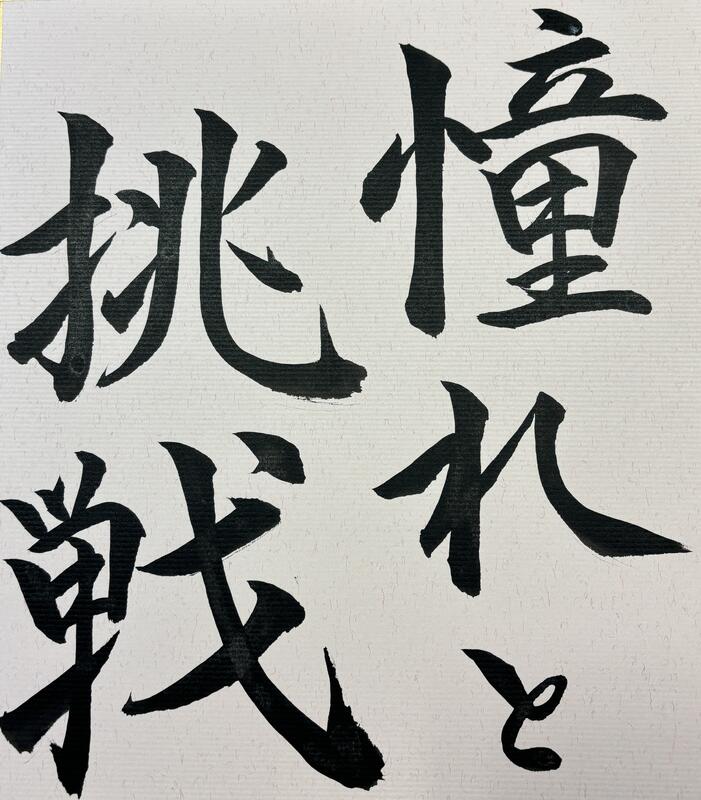 憧れと
挑戦